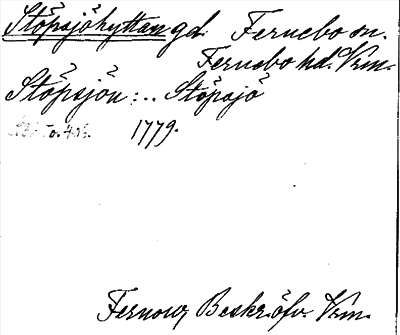 Stöpsjöhyttan gd. Fernebo sn.
Fernebo hd. Vrm.
Stöpsjön: .. Stöpsjö
1779.
Fernow, Beskrifv. Vrm.